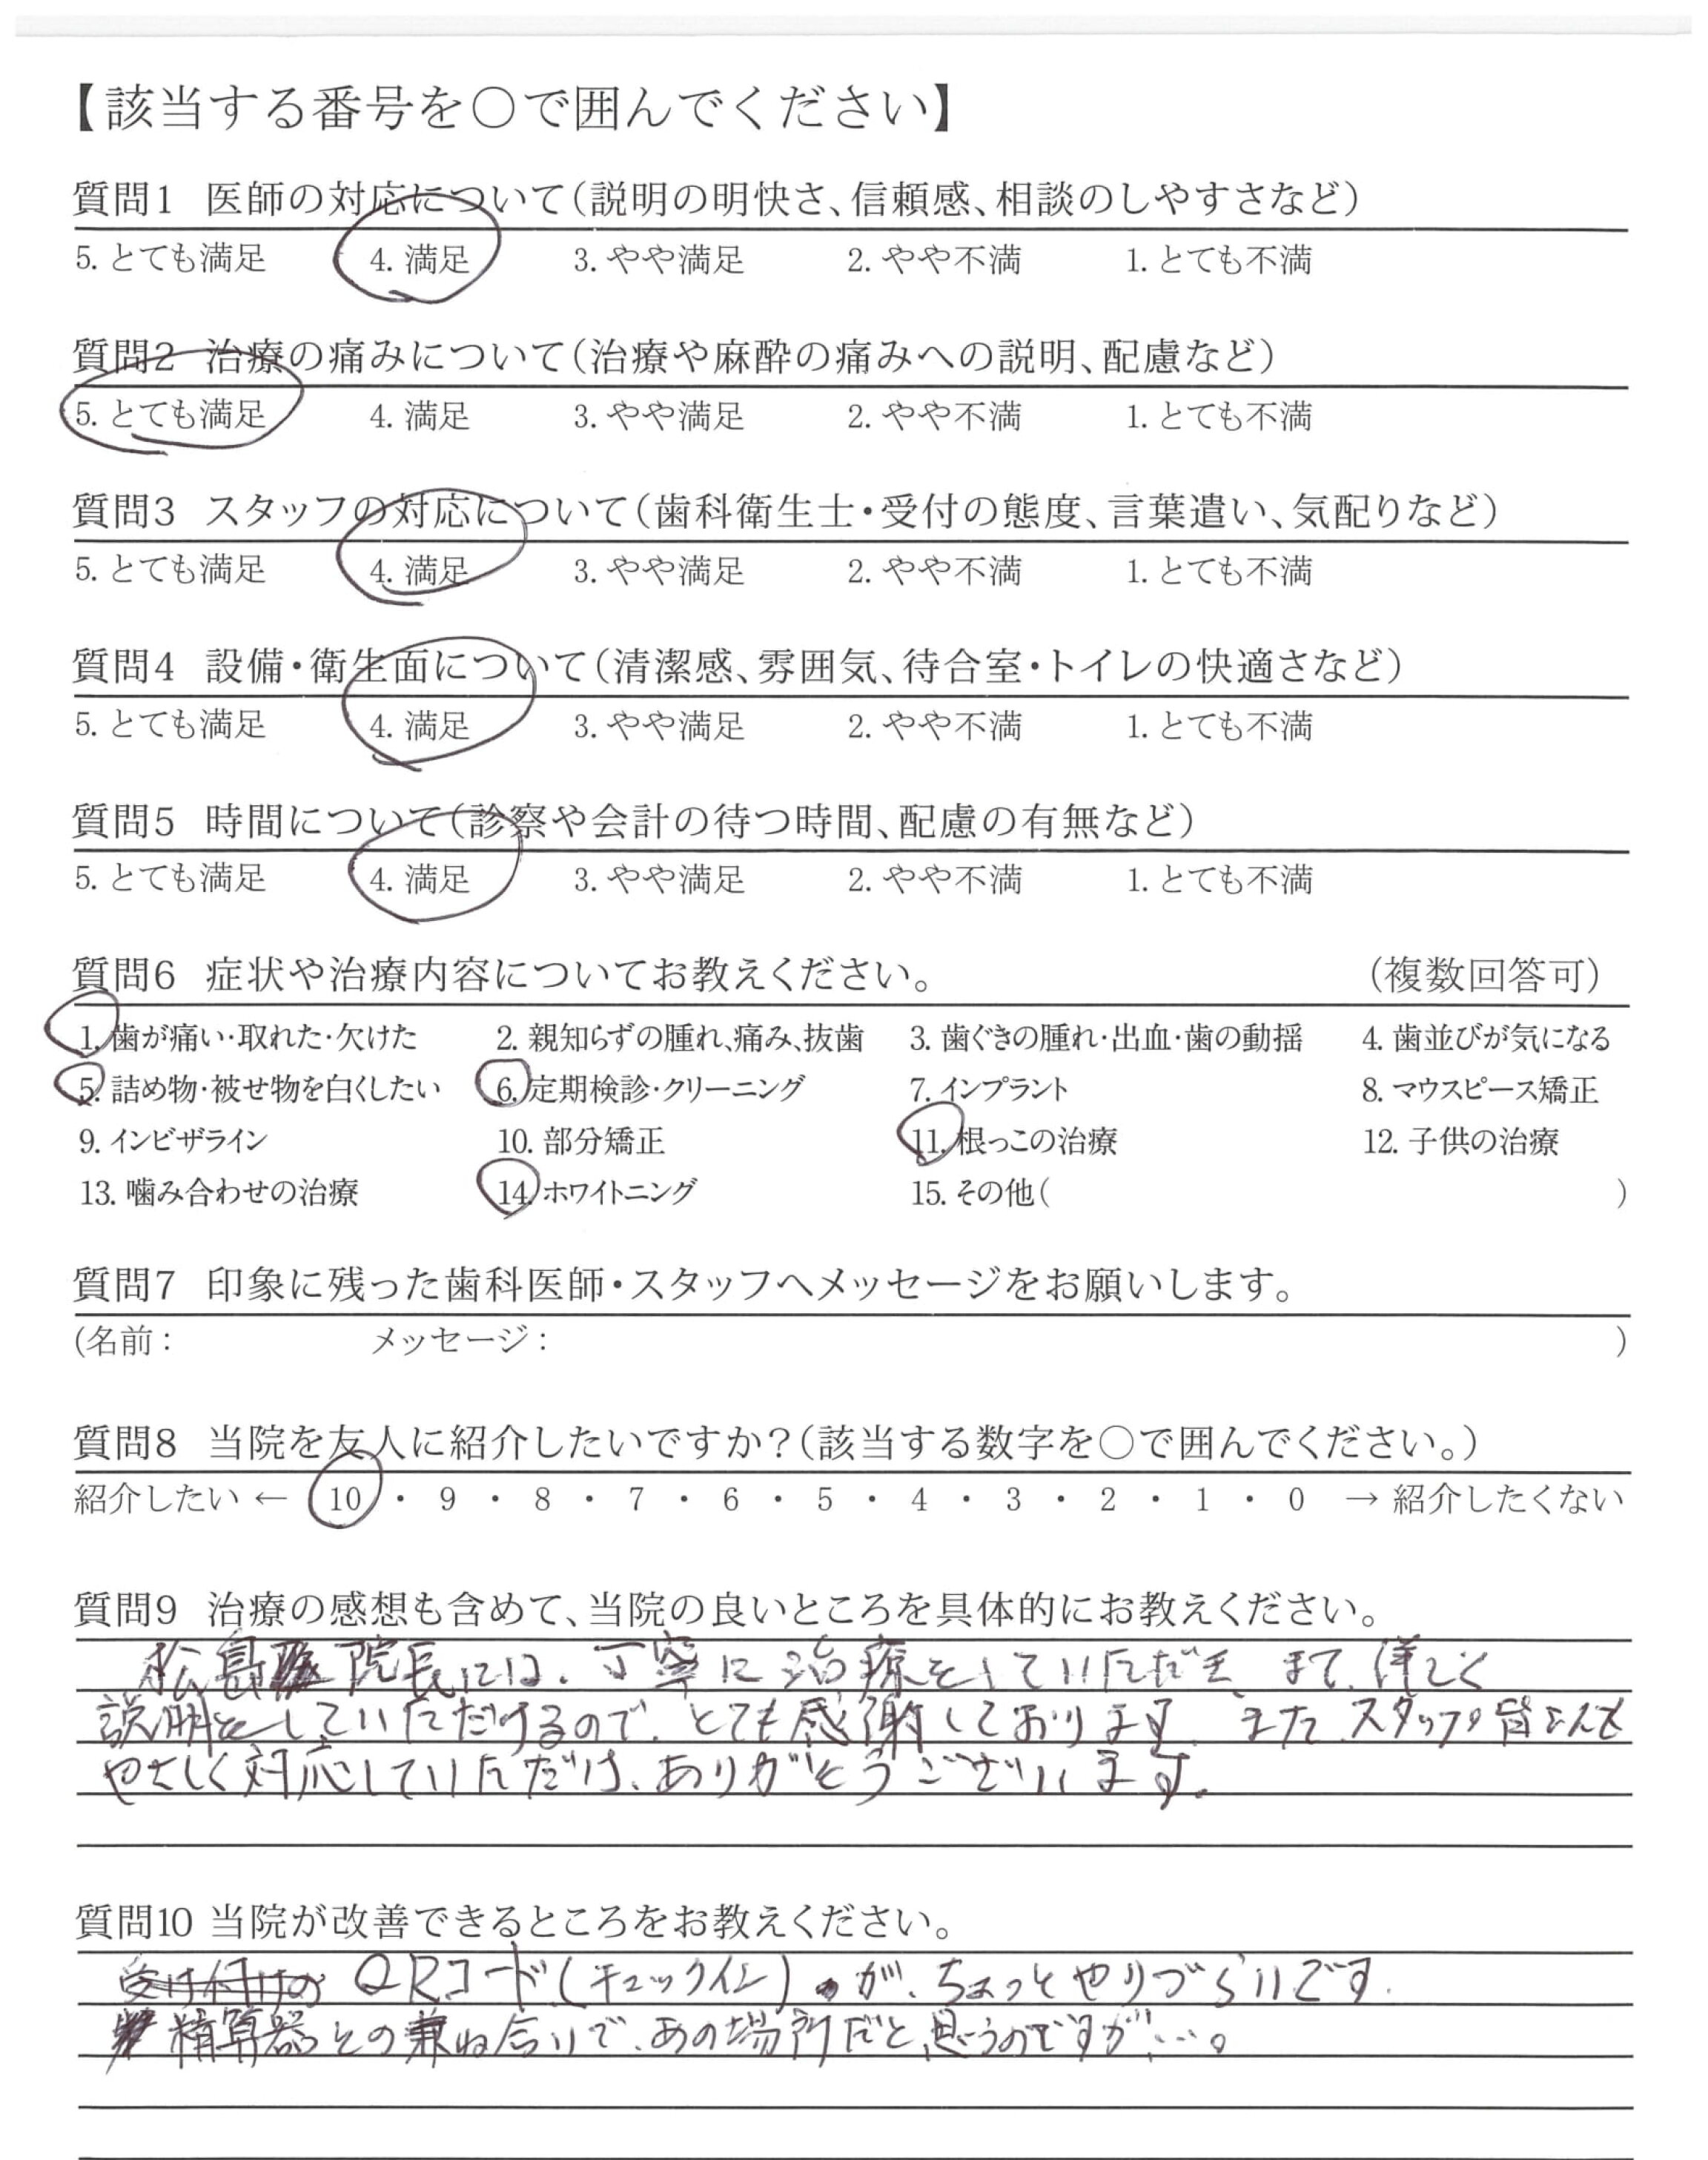 【該当する番号を○で囲んでください】
質問1 医師の対応について(説明の明快さ、信頼感、相談のしやすさなど)
5. とても満足 4. 満足 3. やや満足 2. やや不満 1. とても不満
質問2 治療の痛みについて(治療や麻酔の痛みへの説明、配慮など)
5. とても満足 4. 満足 3. やや満足 2. やや不満 1. とても不満
質問3 スタッフの対応について(歯科衛生士・受付の態度、言葉遣い、気配りなど)
5. とても満足 4. 満足 3. やや満足 2. やや不満 1. とても不満
質問4 設備・衛生面について(清潔感、雰囲気、待合室・トイレの快適さなど)
5. とても満足 4. 満足 3. やや満足 2. やや不満 1. とても不満
質問5 時間について(診察や会計の待つ時間、配慮の有無など)
5. とても満足 4. 満足 3. やや満足 2. やや不満 1. とても不満
質問6 症状や治療内容についてお教えください。 (複数回答可)
1. 歯が痛い・取れた・欠けた 2. 親知らずの腫れ、痛み、抜歯 3. 歯ぐきの腫れ・出血・歯の動揺 4. 歯並びが気になる
5. 詰め物・被せ物を白くしたい 6. 定期検診・クリーニング 7. インプラント 8. マウスピース矯正
9. インビザライン 10. 部分矯正 11. 根っこの治療 12. 子供の治療
13. 噛み合わせの治療 14. ホワイトニング 15. その他( )
質問7 印象に残った歯科医師・スタッフへメッセージをお願いします。
(名前: メッセージ: )
質問8 当院を友人に紹介したいですか?(該当する数字を○で囲んでください。)
紹介したい ← 10 ・ 9 ・ 8 ・ 7 ・ 6 ・ 5 ・ 4 ・ 3 ・ 2 ・ 1 ・ 0 → 紹介したくない
質問9 治療の感想も含めて、当院の良いところを具体的にお教えください。
松島院長には、丁寧に治療をしていただき、まて、詳しく
説明をしていただけるので、とても感謝しております。また、スタッフの皆さんも
やさしく対応していただけ、ありがとうございます。
質問10 当院が改善できるところをお教えください。
受け付けの QRコード(チェックイン)が、ちょっとやりづらいです。
精算器との兼ね合いで、あの場所だと思うのですが…。